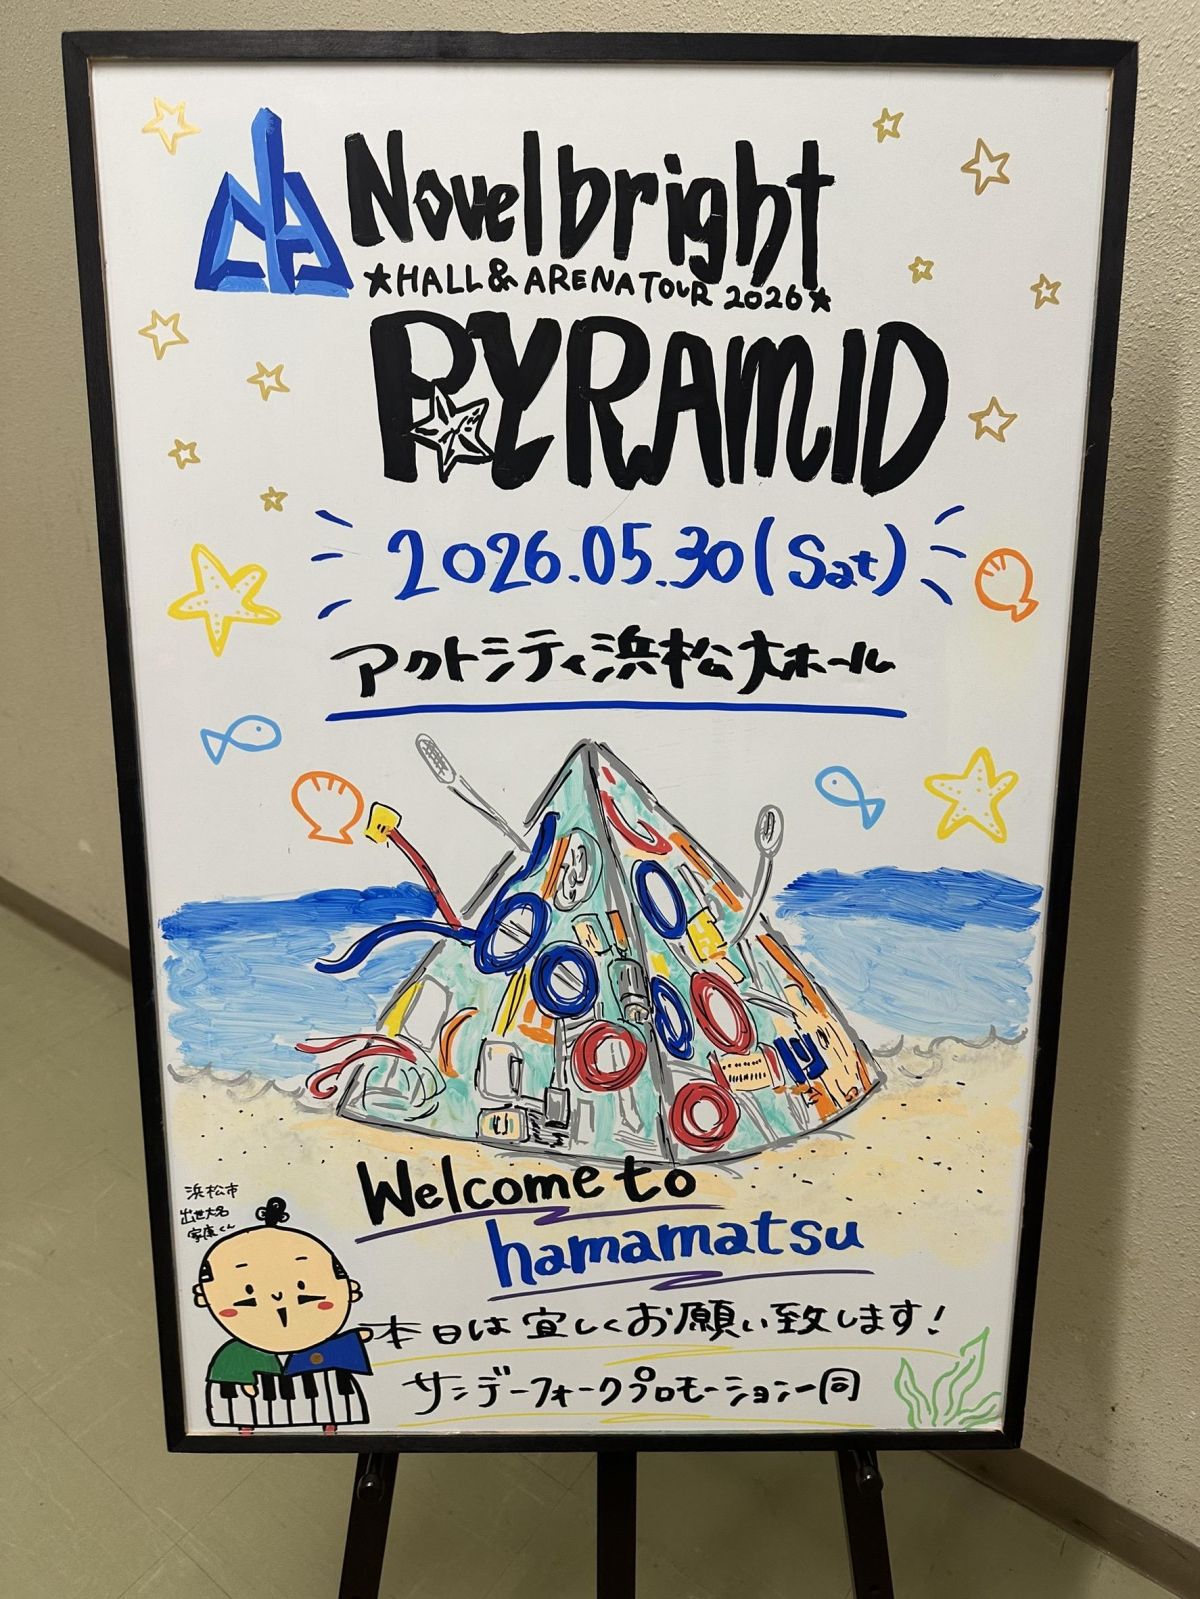 Novelbright
★HALL & ARENA TOUR 2026★
PYRAMID
2026.05.30(Sat)
アクトシティ浜松大ホール
Welcome to
hamamatsu
浜松市
出世大名
家康くん
本日は宜しくお願い致します!
サンデーフォークプロモーション一同